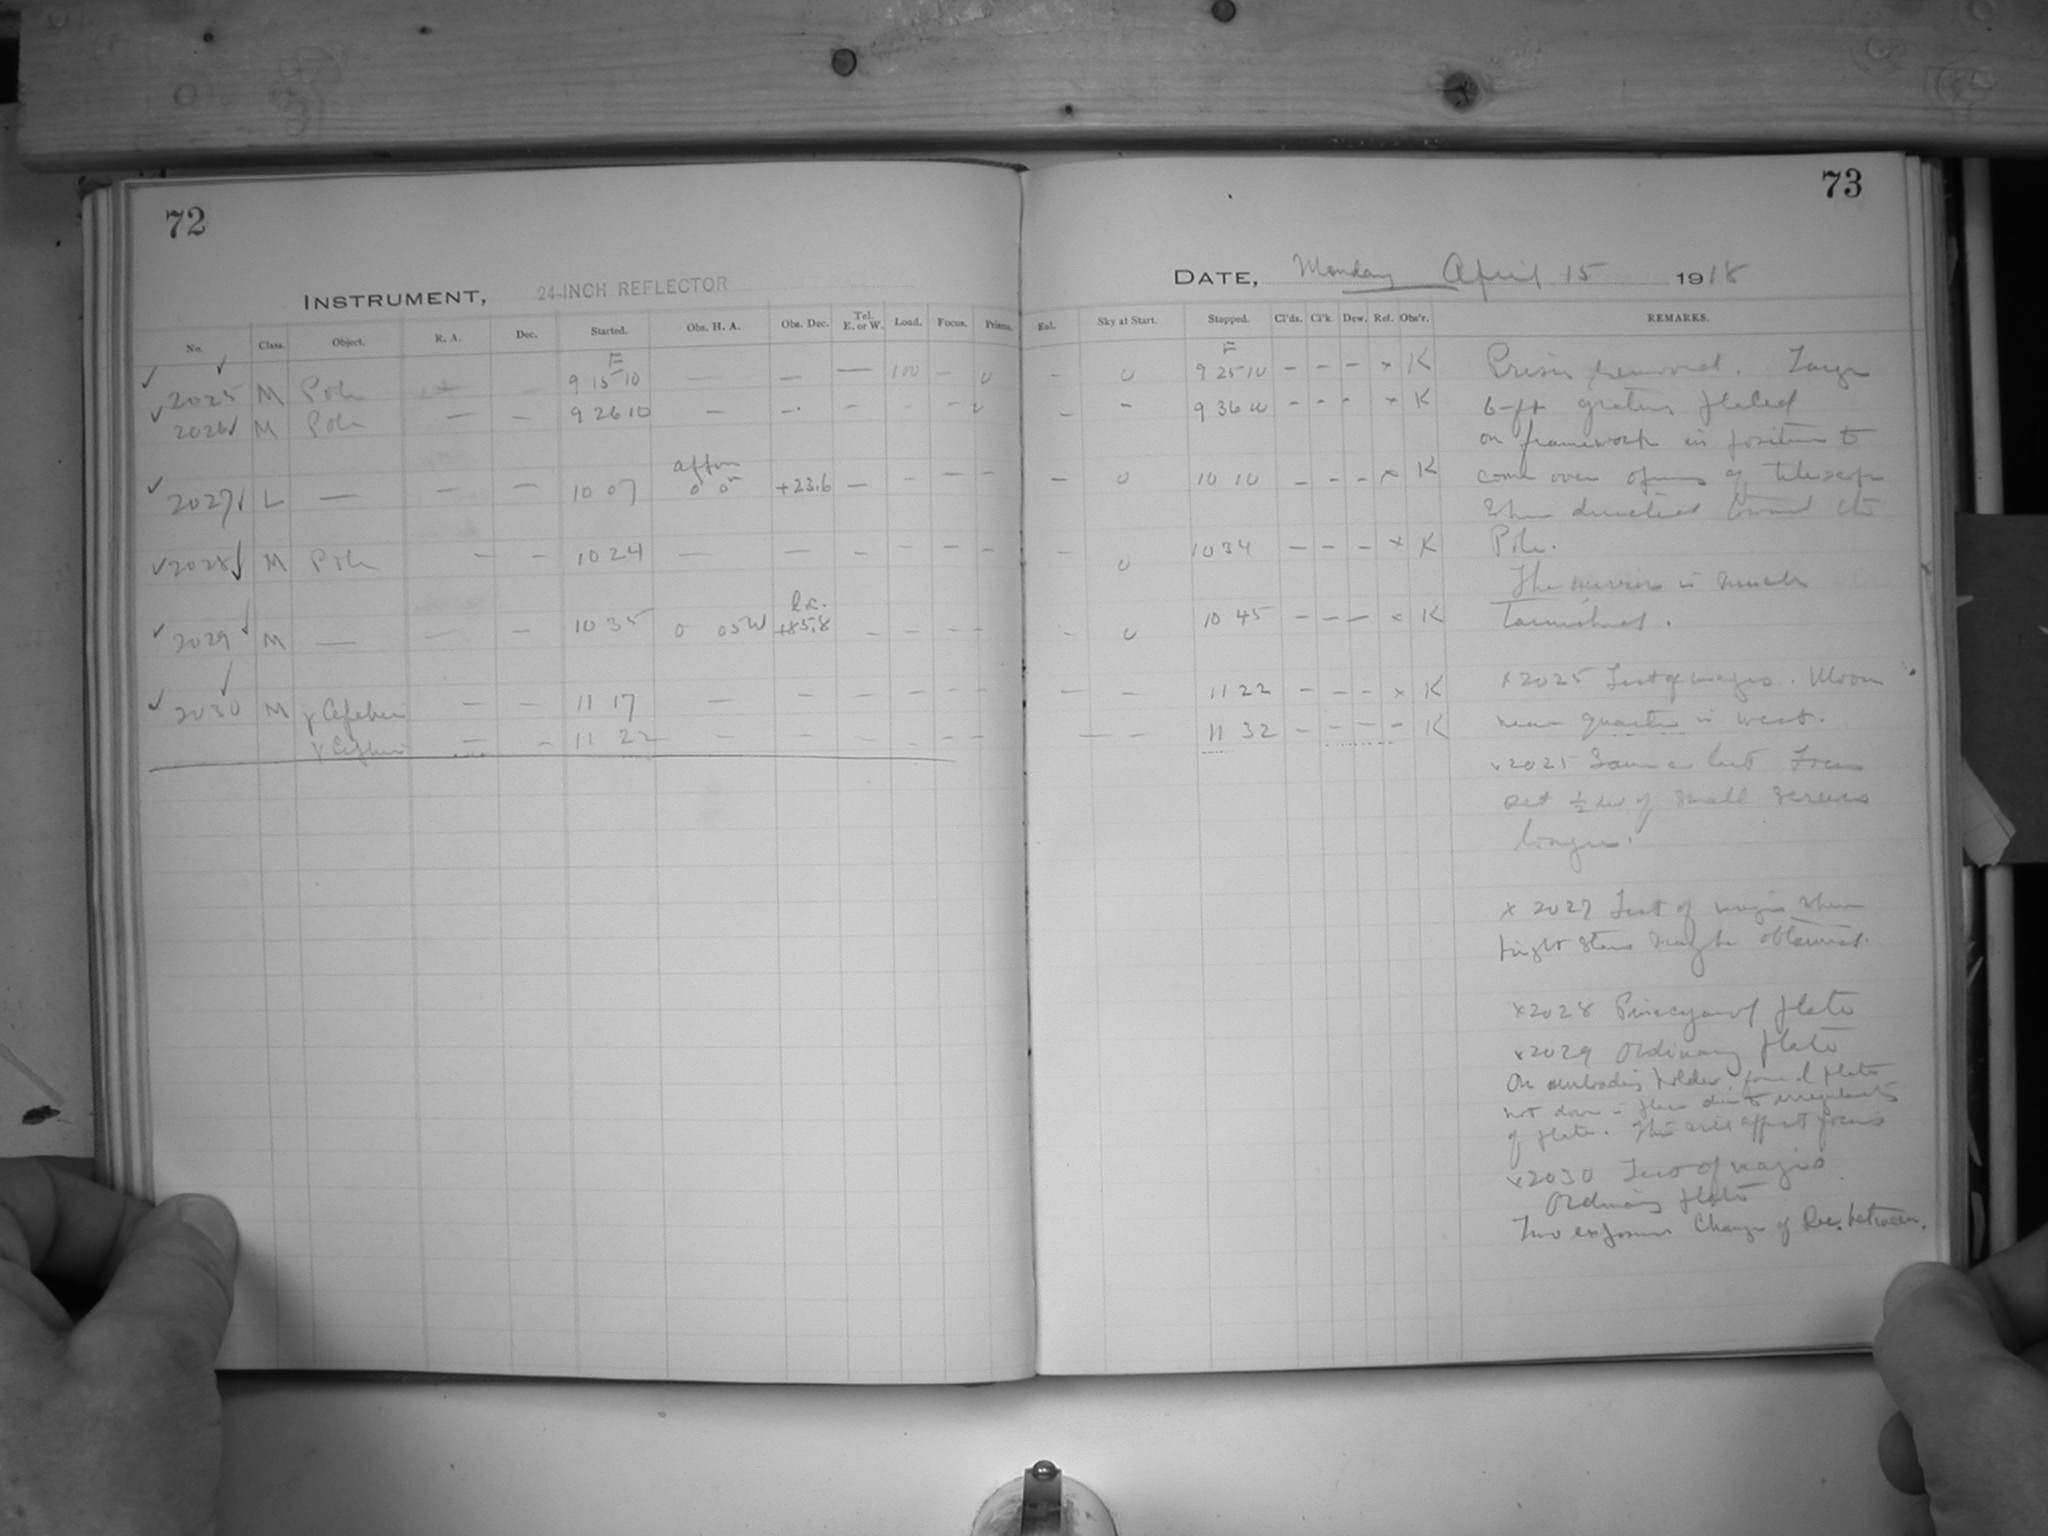 72
INSTRUMENT, 24-INCH REFLECTOR
No. Class. Object. R. A. Dec. Started. Obs. H. A. Obs. Dec. Tel. E. or W. Load. Focus. Prisms.
F
✓ 2025 ✓ M Pole — — 9 15 10 — — — 100 — 0
✓ 2026 ✓ M Pole — — 9 26 10 — — — — —
approx
✓ 2027 ✓ L — — — 10 07 0 0m +23.6 — — — —
✓ 2028 ✓ M Pole — — 10 24 — — — — — —
l.c.
✓ 2029 ✓ M — — — 10 35 0 05W +85.8 — — — —
✓ 2030 ✓ M γ Cephei — — 11 17 — — — — — —
γ Cephei — — 11 22 — — — — — —
73
DATE, Monday April 15 1918
Enl. Sky at Start. Stopped. Cl'ds. Cl'k. Dew. Ref. Obs'r. REMARKS.
F
— 0 9 25 10 — — — x K Prism removed. Large
— — 9 36 10 — — — x K 6-ft grating placed
on framework in position to
— 0 10 10 — — — x K come over opening of telescope
when directed toward the
— 0 10 34 — — — x K Pole.
The mirror is much
— 0 10 45 — — — x K tarnished.
— — 11 22 — — — x K x 2025 Test of images. Moon
— — 11 32 — — — — K near quarter in west.
x 2025 Same as last Focus
set ½ of small screws
longer.
x 2027 Test of images when
bright stars may be obtained.
x 2028 Pinacyanol plate
x 2029 Ordinary plate
On unloading holder, found plate
not down in place due to irregularity
of plate. This will affect focus
x 2030 Test of images
Ordinary plate
Two exposures Change of Dec. between.